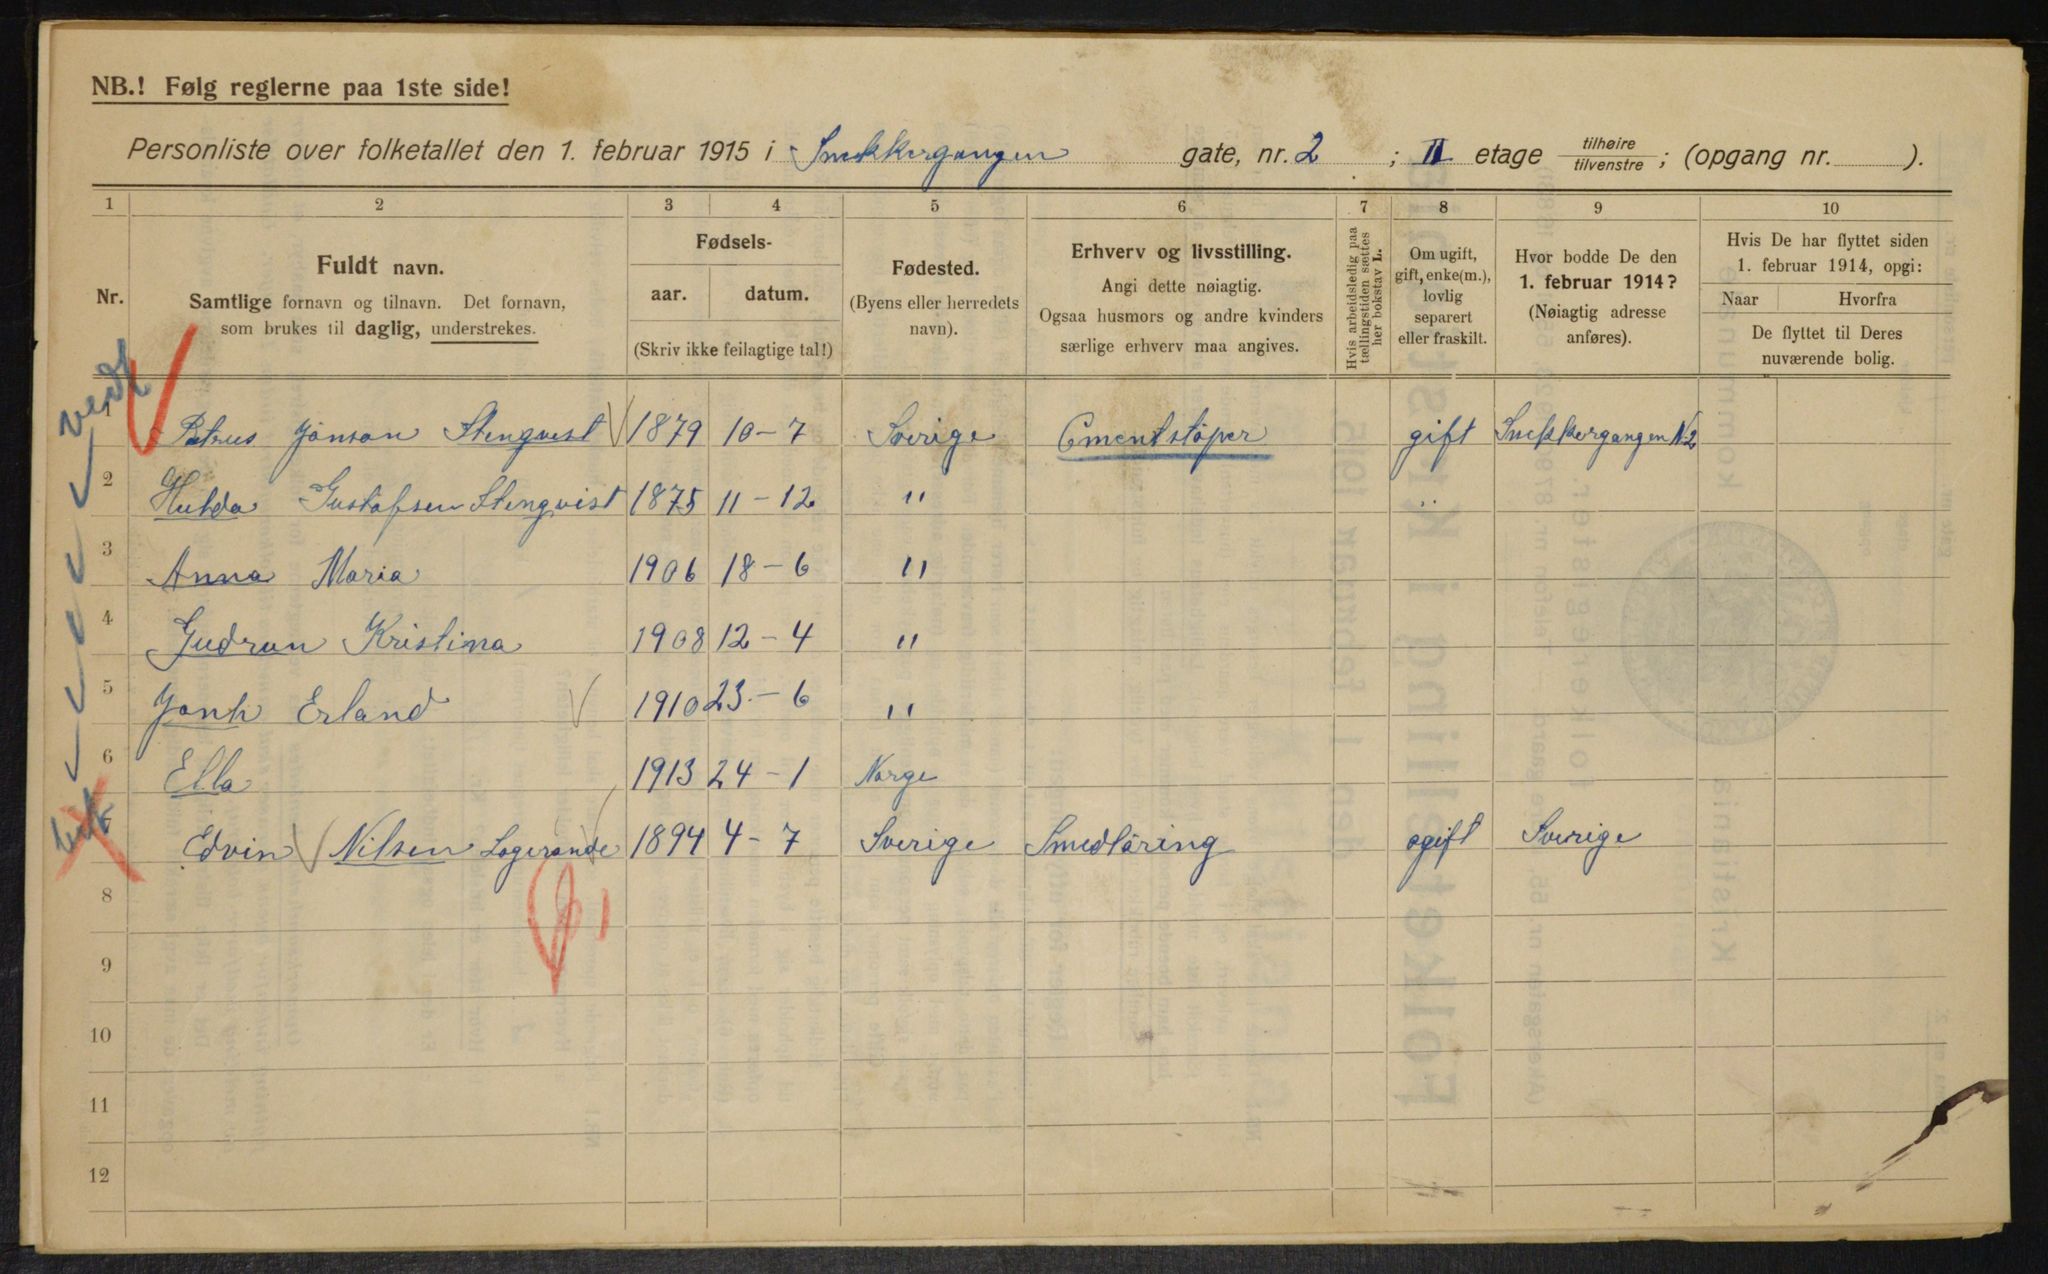 NB.! Følg reglerne paa 1ste side!
Personliste over folketallet den 1. februar 1915 i Snekkergangen gate, nr. 2 ; II etage tilhøire / tilvenstre ; (opgang nr. ).
1 2 3 4 5 6 7 8 9 10
Nr.
Fuldt navn.
Samtlige fornavn og tilnavn. Det fornavn,
som brukes til daglig, understrekes.
Fødsels-
aar. datum.
(Skriv ikke feilagtige tal!)
Fødested.
(Byens eller herredets
navn).
Erhverv og livsstilling.
Angi dette nøiagtig.
Ogsaa husmors og andre kvinders
særlige erhverv maa angives.
Hvis arbeidsledig paa
tællingstiden sættes
her bokstav L.
Om ugift,
gift, enke(m.),
lovlig
separert
eller fraskilt.
Hvor bodde De den
1. februar 1914?
(Nøiagtig adresse
anføres).
Hvis De har flyttet siden
1. februar 1914, opgi:
Naar Hvorfra
De flyttet til Deres
nuværende bolig.
1 Petrus Jönson Stenqvist 1879 10-7 Sverige Cmentstöper gift Snekkergangen N 2
2 Hulda Gustafsen Stenqvist 1875 11-12 " "
3 Anna Maria 1906 18-6 "
4 Gudrun Kristina 1908 12-4 "
5 Jonh Erland 1910 23-6 "
6 Ella 1913 24-1 Norge
7 Edvin Nilsen Logerande 1894 4-7 Sverige Smedläring ogift Sverige
8
9
10
11
12